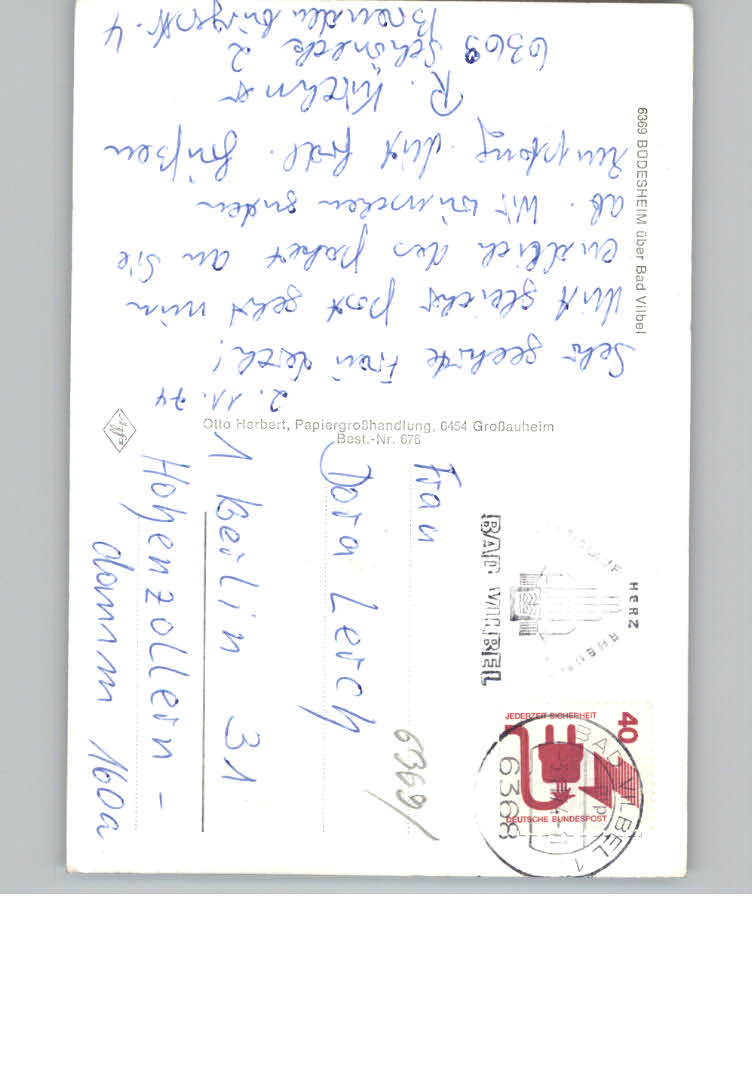 6369 BÜDESHEIM über Bad Vilbel
2. 11. 74
Sehr geehrte Frau Lerch!
Mit gleicher Post geht nun
endlich das Paket an Sie
ab. Wir wünschen guten
Empfang. Mit frdl. Grüßen
R.
6369 Schöneck 2
Brandenburgerstr. 4
Otto Herbert, Papiergroßhandlung, 6454 Großauheim
Best.-Nr. 676
Agfa
Frau
Dora Lerch
1 Berlin 31
Hohenzollern-
damm 160a
6369/
BAD VILBEL
HERZ
RHEUMA
40
JEDERZEIT SICHERHEIT
DEUTSCHE BUNDESPOST
BAD VILBEL 1
6368